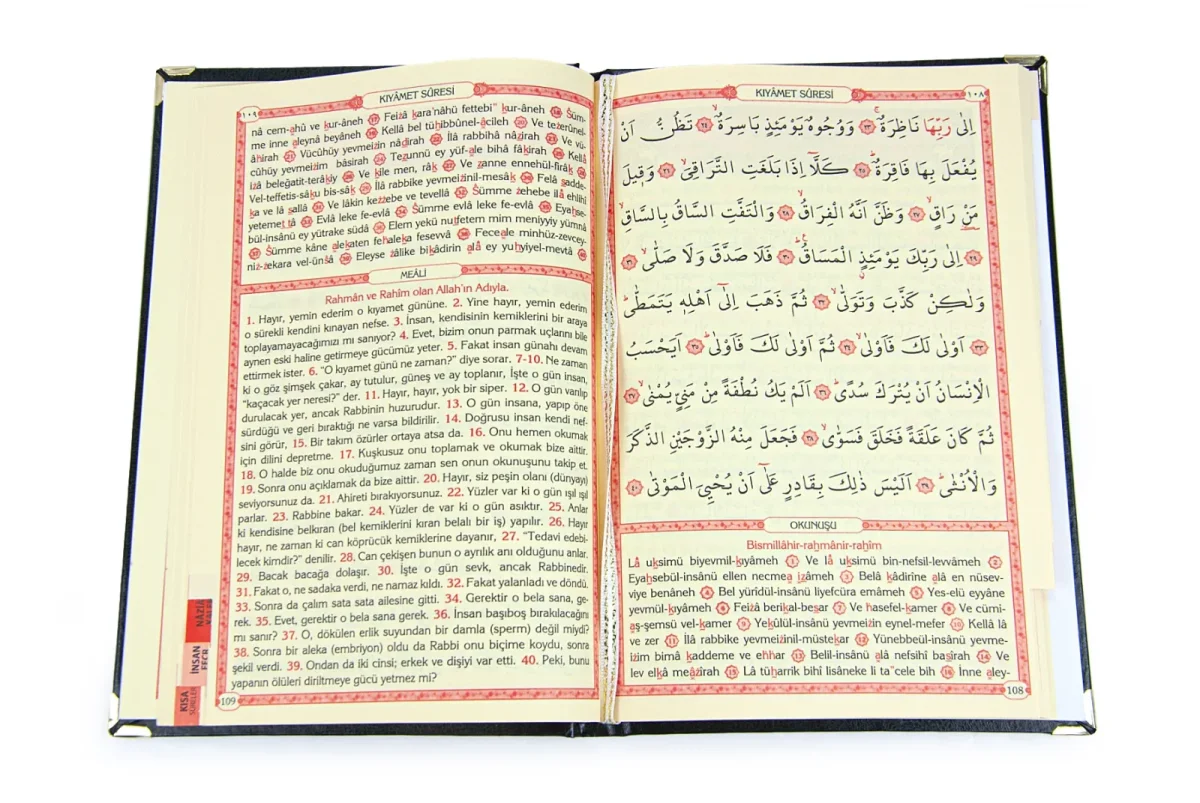 KIYÂMET SÛRESİ
١٠٨
اِلٰى رَبِّهَا نَاظِرَةٌۚ ٢٣ وَوُجُوهٌ يَوْمَئِذٍ بَاسِرَةٌۙ ٢٤ تَظُنُّ اَنْ
يُفْعَلَ بِهَا فَاقِرَةٌۜ ٢٥ كَلَّٓا اِذَا بَلَغَتِ التَّرَاقِيَۙ ٢٦ وَق۪يلَ
مَنْ رَاقٍۙ ٢٧ وَظَنَّ اَنَّهُ الْفِرَاقُۙ ٢٨ وَالْتَفَّتِ السَّاقُ بِالسَّاقِۙ
٢٩ اِلٰى رَبِّكَ يَوْمَئِذٍ الْمَسَاقُۜ ٣٠ فَلَا صَدَّقَ وَلَا صَلّٰىۙ ٣١
وَلٰكِنْ كَذَّبَ وَتَوَلّٰىۙ ٣٢ ثُمَّ ذَهَبَ اِلٰٓى اَهْلِه۪ يَتَمَطّٰىۜ
٣٣ اَوْلٰى لَكَ فَاَوْلٰىۙ ٣٤ ثُمَّ اَوْلٰى لَكَ فَاَوْلٰىۜ ٣٥ اَيَحْسَبُ
الْاِنْسَانُ اَنْ يُتْرَكَ سُدًىۜ ٣٦ اَلَمْ يَكُ نُطْفَةً مِنْ مَنِيٍّ يُمْنٰىۙ ٣٧
ثُمَّ كَانَ عَلَقَةً فَخَلَقَ فَسَوّٰىۙ ٣٨ فَجَعَلَ مِنْهُ الزَّوْجَيْنِ الذَّكَرَ
وَالْاُنْثٰىۜ ٣٩ اَلَيْسَ ذٰلِكَ بِقَادِرٍ عَلٰٓى اَنْ يُحْيِيَ الْمَوْتٰى ٤٠
OKUNUŞU
Bismillâhir-rahmânir-rahîm
Lâ uksimü biyevmil-kıyâmeh 1 Ve lâ uksimü bin-nefsil-levvâmeh 2
Eyahsebül-insânü ellen necmea ızâmeh 3 Belâ kâdirîne alâ en nüsev-
viye benâneh 4 Bel yürîdül-insânü liyefcüra emâmeh 5 Yes-elü eyyâne
yevmül-kıyâmeh 6 Feizâ berikal-besar 7 Ve hasefel-kamer 8 Ve cümi-
aş-şemsü vel-kamer 9 Yekûlül-insânü yevmeizin eynel-mefer 10 Kellâ lâ
ve zer 11 İlâ rabbike yevmeizinil-müstekar 12 Yünebbeül-insânü yevme-
izim bimâ kaddeme ve ehhar 13 Belil-insânü alâ nefsihî basîrah 14 Ve
lev elkâ meâzîrah 15 Lâ tüharrik bihî lisâneke li ta"cele bih 16 İnne aley-
108
١٠٩
KIYÂMET SÛRESİ
nâ cem-ahû ve kur-âneh 17 Feizâ kara'nâhü fettebi" kur-âneh 18 Süm-
me inne aleynâ beyâneh 19 Kellâ bel tühibbûnel-âcileh 20 Ve tezerûnel-
âhirah 21 Vücûhüy yevmeizin nâdirah 22 İlâ rabbihâ nâzirah 23 Ve vü-
cûhüy yevmeizim bâsirah 24 Tezunnü ey yüf-ale bihâ fâkirah 25 Kellâ
izâ beleğatit-terâkıy 26 Ve kîle men, râk 27 Ve zanne ennehül-firâk 28
Vel-teffetis-sâku bis-sâk 29 İlâ rabbike yevmeizinil-mesâk 30 Felâ sadde-
ka ve lâ sallâ 31 Ve lâkin kezzebe ve tevellâ 32 Sümme zehebe ilâ ehlihî
yetemettâ 33 Evlâ leke fe-evlâ 34 Sümme evlâ leke fe-evlâ 35 Eyahse-
bül-insânü ey yütrake südâ 36 Elem yekü nutfetem mim meniyyiy yümnâ
37 Sümme kâne alekaten fehaleka fesevvâ 38 Feceale minhüz-zevcey-
niz-zekara vel-ünsâ 39 Eleyse zâlike bikâdirin alâ ey yuhyiyel-mevtâ 40
MEÂLİ
Rahmân ve Rahîm olan Allah'ın Adıyla.
1. Hayır, yemin ederim o kıyamet gününe. 2. Yine hayır, yemin ederim
o sürekli kendini kınayan nefse. 3. İnsan, kendisinin kemiklerini bir araya
toplayamayacağımızı mı sanıyor? 4. Evet, bizim onun parmak uçlarını bile
aynen eski haline getirmeye gücümüz yeter. 5. Fakat insan günahı devam
ettirmek ister. 6. "O kıyamet günü ne zaman?" diye sorar. 7-10. Ne zaman
ki o göz şimşek çakar, ay tutulur, güneş ve ay toplanır, İşte o gün insan,
"kaçacak yer neresi?" der. 11. Hayır, hayır, yok bir siper. 12. O gün varılıp
durulacak yer, ancak Rabbinin huzurudur. 13. O gün insana, yapıp öne
sürdüğü ve geri bıraktığı ne varsa bildirilir. 14. Doğrusu insan kendi nef-
sini görür, 15. Bir takım özürler ortaya atsa da. 16. Onu hemen okumak
için dilini depretme. 17. Kuşkusuz onu toplamak ve okumak bize aittir.
18. O halde biz onu okuduğumuz zaman sen onun okunuşunu takip et.
19. Sonra onu açıklamak da bize aittir. 20. Hayır, siz peşin olanı (dünyayı)
seviyorsunuz da. 21. Ahireti bırakıyorsunuz. 22. Yüzler var ki o gün ışıl ışıl
parlar. 23. Rabbine bakar. 24. Yüzler de var ki o gün asıktır. 25. Anlar
ki kendisine belkıran (bel kemiklerini kıran belalı bir iş) yapılır. 26. Hayır
hayır, ne zaman ki can köprücük kemiklerine dayanır, 27. "Tedavi edebi-
lecek kimdir?" denilir. 28. Can çekişen bunun o ayrılık anı olduğunu anlar.
29. Bacak bacağa dolaşır. 30. İşte o gün sevk, ancak Rabbinedir.
31. Fakat o, ne sadaka verdi, ne namaz kıldı. 32. Fakat yalanladı ve döndü.
33. Sonra da çalım sata sata ailesine gitti. 34. Gerektir o bela sana, ge-
rek. 35. Evet, gerektir o bela sana gerek. 36. İnsan başıboş bırakılacağını
mı sanır? 37. O, dökülen erlik suyundan bir damla (sperm) değil miydi?
38. Sonra bir aleka (embriyon) oldu da Rabbi onu biçime koydu, sonra
şekil verdi. 39. Ondan da iki cinsi; erkek ve dişiyi var etti. 40. Peki, bunu
yapanın ölüleri diriltmeye gücü yetmez mi?
109
İNSAN
KISA